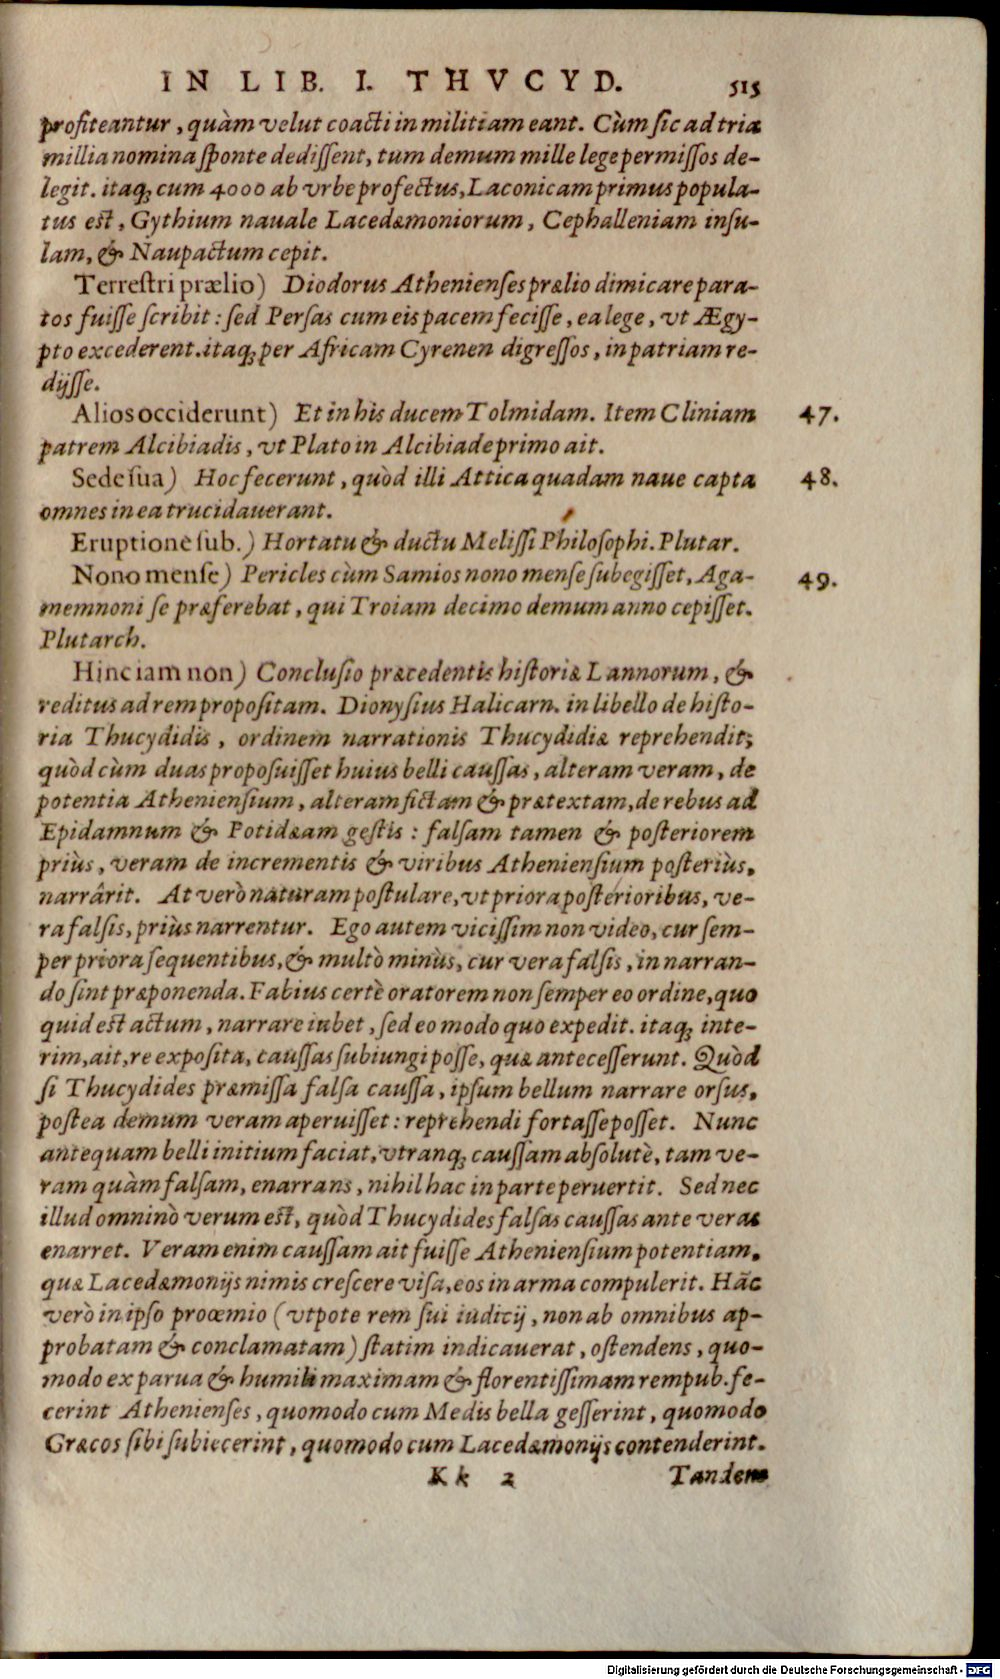 IN LIB. I. THVCYD. 515
profiteantur, quàm velut coacti in militiam eant. Cùm sic ad tria
millia nomina sponte dedissent, tum demum mille lege permissos de-
legit. itaq; cum 4000 ab vrbe profectus, Laconicam primus popula-
tus est, Gythium nauale Lacedæmoniorum, Cephalleniam insu-
lam, & Naupactum cepit.
Terrestri prælio) Diodorus Athenienses prælio dimicare para-
tos fuisse scribit: sed Persas cum eis pacem fecisse, ea lege, vt Ægy-
pto excederent. itaq; per Africam Cyrenen digressos, in patriam re-
dijsse.
Alios occiderunt) Et in his ducem Tolmidam. Item Cliniam 47.
patrem Alcibiadis, vt Plato in Alcibiade primo ait.
Sede sua) Hoc fecerunt, quòd illi Attica quadam naue capta 48.
omnes in ea trucidauerant.
Eruptione sub.) Hortatu & ductu Melissi Philosophi. Plutar.
Nono mense) Pericles cùm Samios nono mense subegisset, Aga- 49.
memnoni se præferebat, qui Troiam decimo demum anno cepisset.
Plutarch.
Hinc iam non) Conclusio præcedentis historiæ L annorum, &
reditus ad rem propositam. Dionysius Halicarn. in libello de histo-
ria Thucydidis, ordinem narrationis Thucydidiæ reprehendit;
quòd cùm duas proposuisset huius belli caussas, alteram veram, de
potentia Atheniensium, alteram fictam & prætextam, de rebus ad
Epidamnum & Potidæam gestis: falsam tamen & posteriorem
priùs, veram de incrementis & viribus Atheniensium posteriùs,
narrârit. At verò naturam postulare, vt priora posterioribus, ve-
ra falsis, priùs narrentur. Ego autem vicissim non video, cur sem-
per priora sequentibus, & multò minùs, cur vera falsis, in narran-
do sint præponenda. Fabius certè oratorem non semper eo ordine, quo
quid est actum, narrare iubet, sed eo modo quo expedit. itaq; inte-
rim, ait, re exposita, caussas subiungi posse, quæ antecesserunt. Quòd
si Thucydides præmissa falsa caussa, ipsum bellum narrare orsus,
postea demum veram aperuisset: reprehendi fortasse posset. Nunc
antequam belli initium faciat, vtranq; caussam absolutè, tam ve-
ram quàm falsam, enarrans, nihil hac in parte peruertit. Sed nec
illud omninò verum est, quòd Thucydides falsas caussas ante veras
enarret. Veram enim caussam ait fuisse Atheniensium potentiam,
quæ Lacedæmonijs nimis crescere visa, eos in arma compulerit. Hãc
verò in ipso proœmio (vtpote rem sui iudicij, non ab omnibus ap-
probatam & conclamatam) statim indicauerat, ostendens, quo-
modo ex parua & humili maximam & florentissimam rempub. fe-
cerint Athenienses, quomodo cum Medis bella gesserint, quomodo
Græcos sibi subiecerint, quomodo cum Lacedæmonijs contenderint.
Kk 2 Tandem
Digitalisierung gefördert durch die Deutsche Forschungsgemeinschaft - DFG